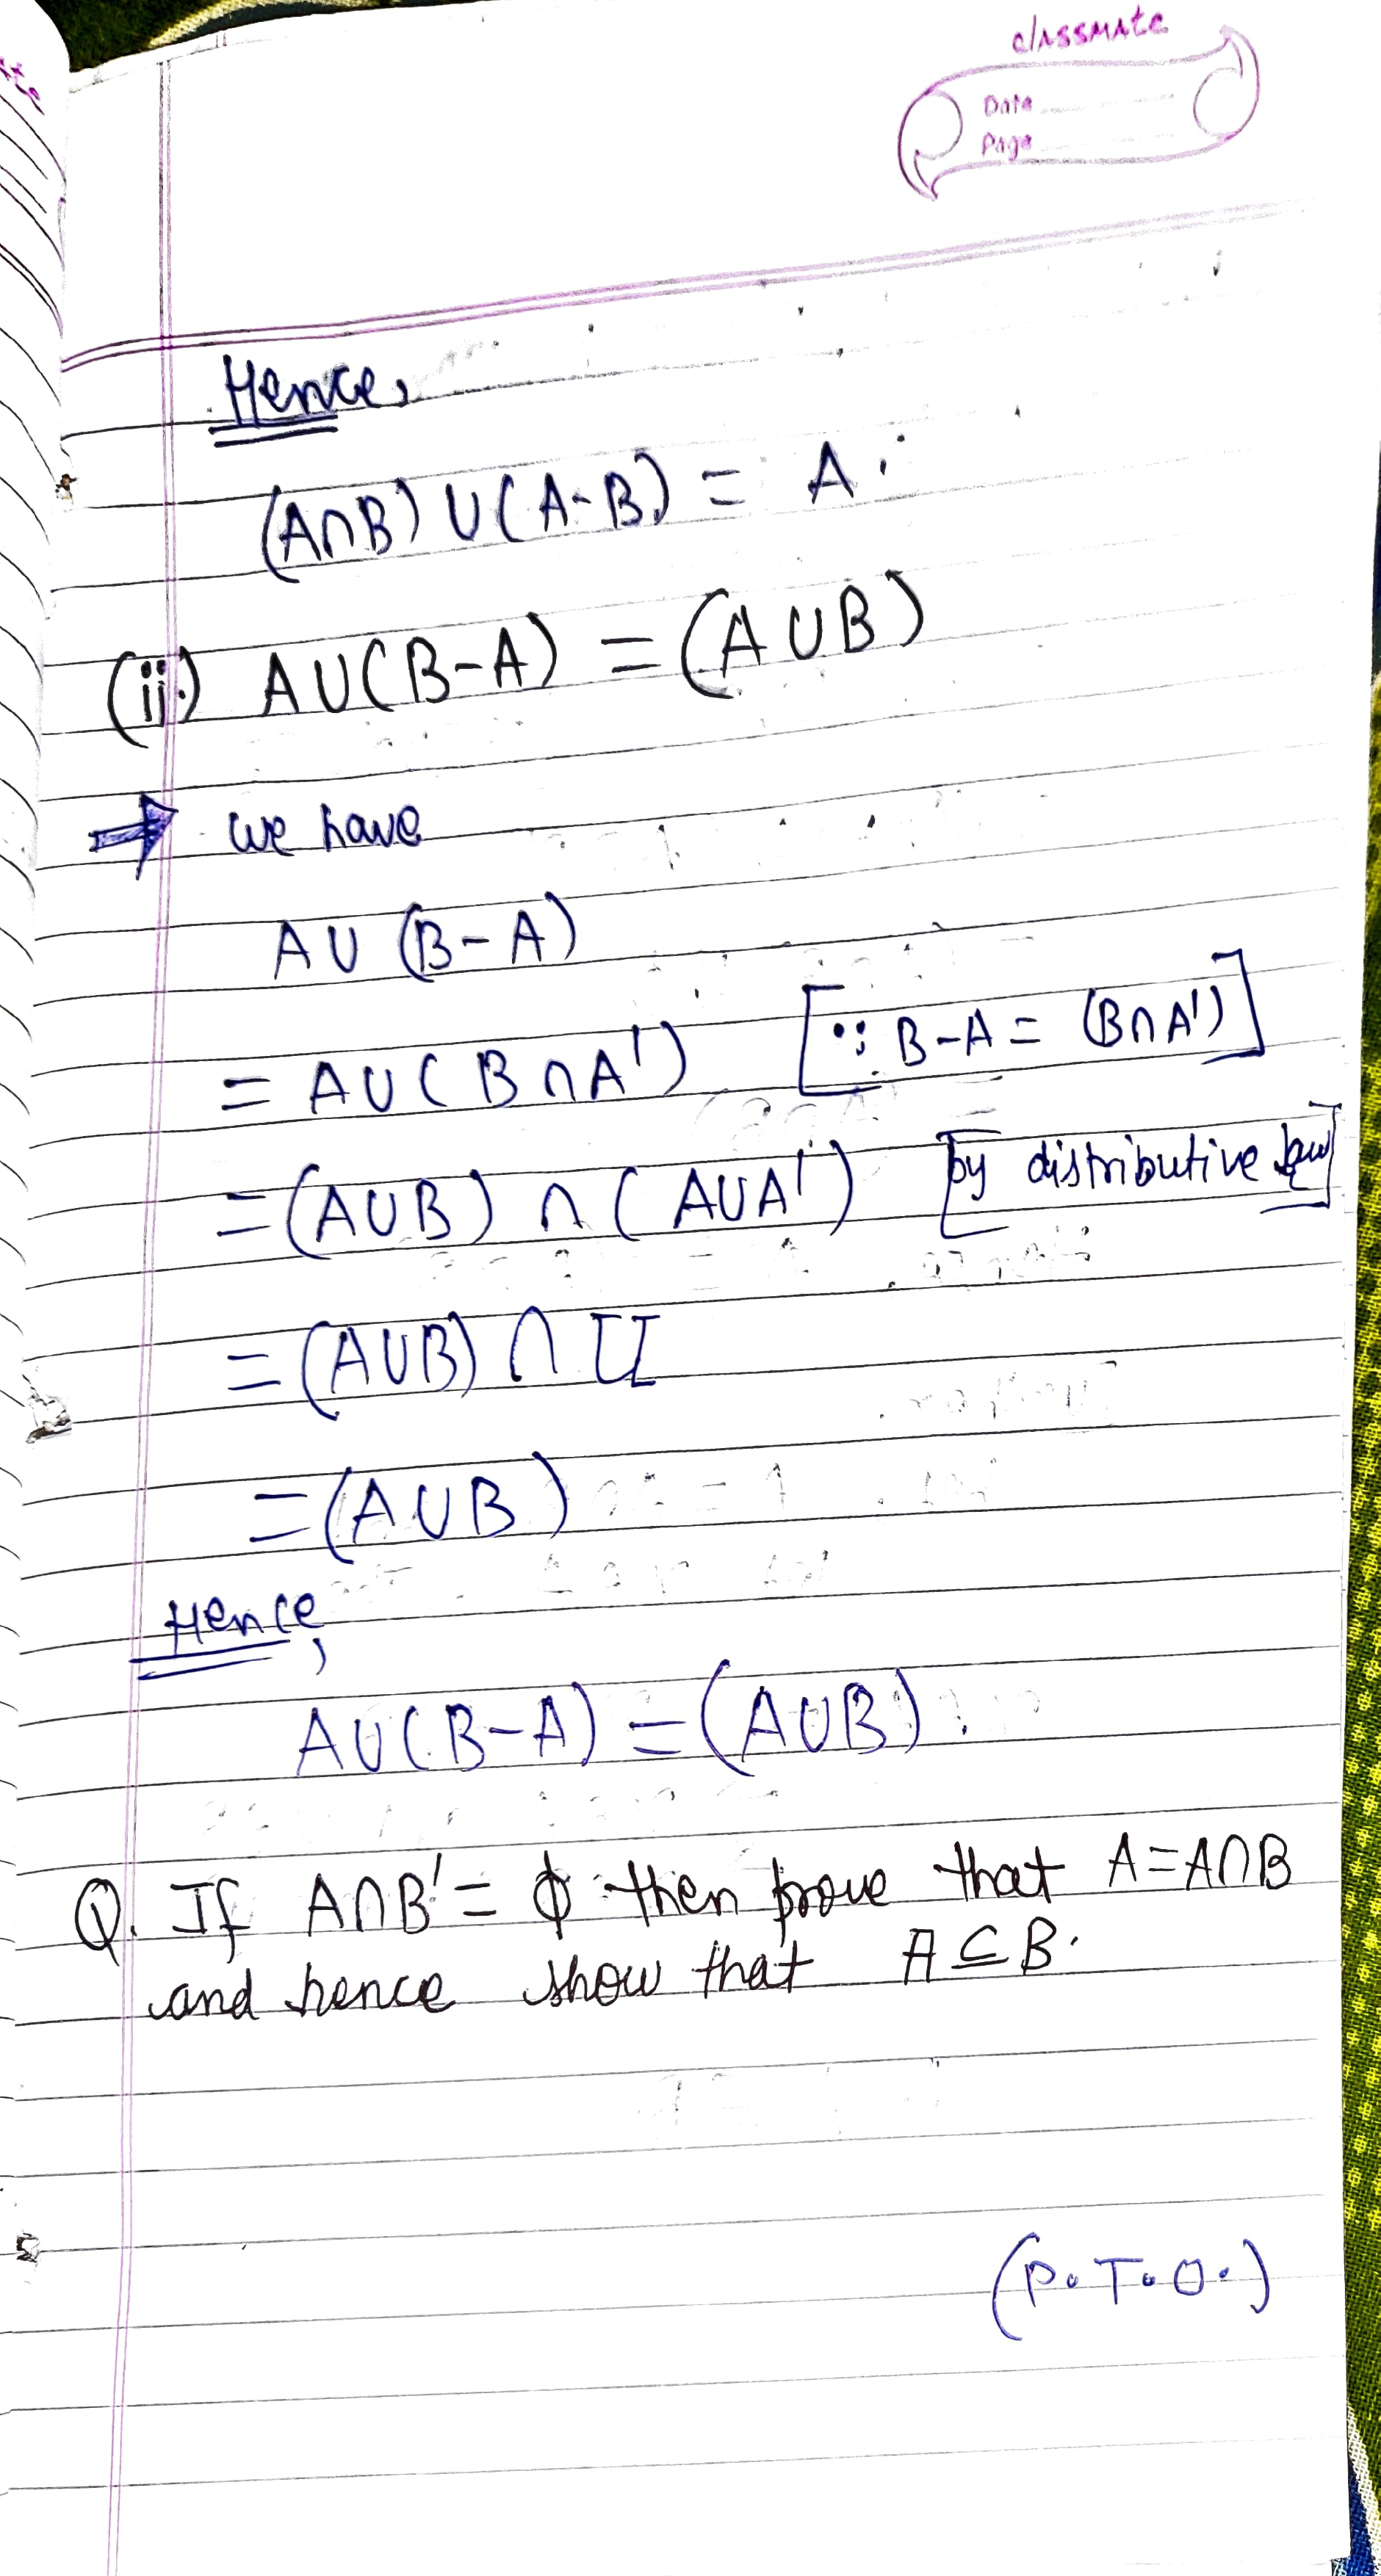 classmate
Date
Page
Hence,
(A∩B) ∪ (A-B) = A.
(ii) A∪(B-A) = (A∪B)
⇒ we have
A∪ (B-A)
= A∪(B∩A') [∵ B-A = (B∩A')]
= (A∪B) ∩ (A∪A') [by distributive law]
= (A∪B) ∩ U
= (A∪B)
Hence,
A∪(B-A) = (A∪B).
Q. If A∩B' = ϕ then prove that A=A∩B
and hence show that A⊆B.
(P.T.O.)